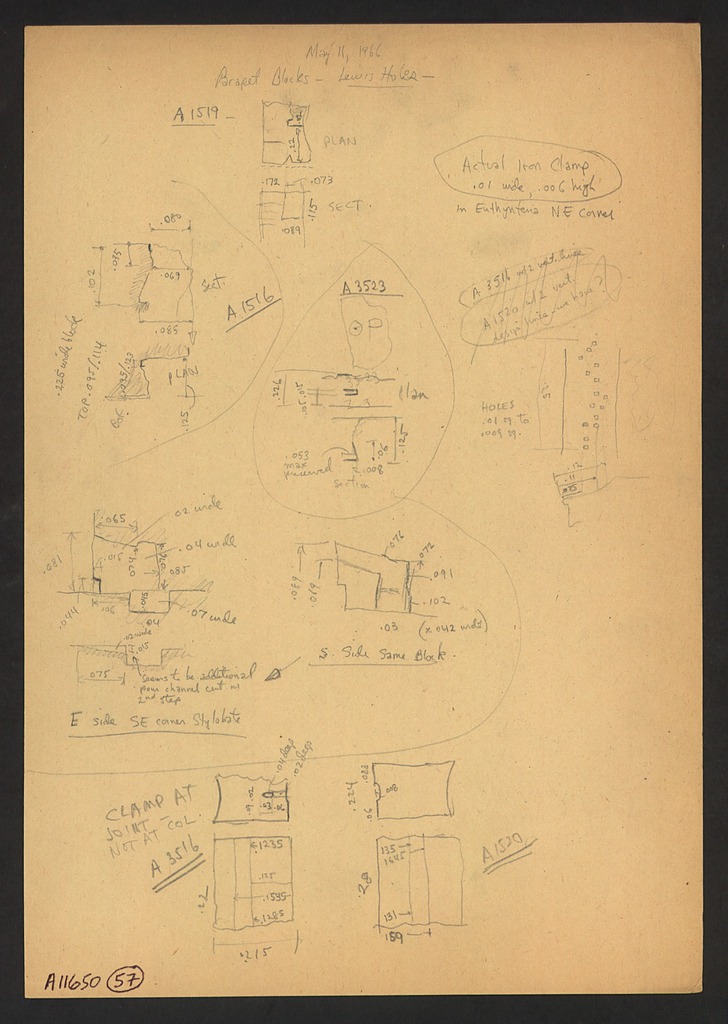 May 11, 1966
Parapet Blocks - Lewis Holes -
A 1519 -
PLAN
.22
.172 .073
.115
SECT.
.089
Actual Iron Clamp
.01 wide, .006 high
in Euthynteria NE corner
.080
.102
.035
.069
Sect.
.085
A 1516
.225 wide block
TOP .095/.114
PLAN
.125
A 3523
Plan
.226
.05 .015
.125
.06
.053
max
preserved
.008
Section
A 3516 w/2 vert.
A 1520 w/2 vert
HOLES
.01 to
.009
.12
.11
.065
.02 wide
.081
.015
.04 wide
.085
.044
.06
.04
.07 wide
.02 wide
.015
.075
Seems to be additional
pour channel cut in
2nd step
E side SE corner Stylobate
.076
.072
.089
.091
.102
.03
(x .042 wide)
S. Side Same Block.
.04 deep
.02 deep
.09 .02
.03 .06
CLAMP AT
JOINT -
NOT AT COL.
A 3516
.22
.1235
.135
.1595
.1285
.215
.224
.06
.008
A 1520
.28
135
1645
131
159
A11650 57